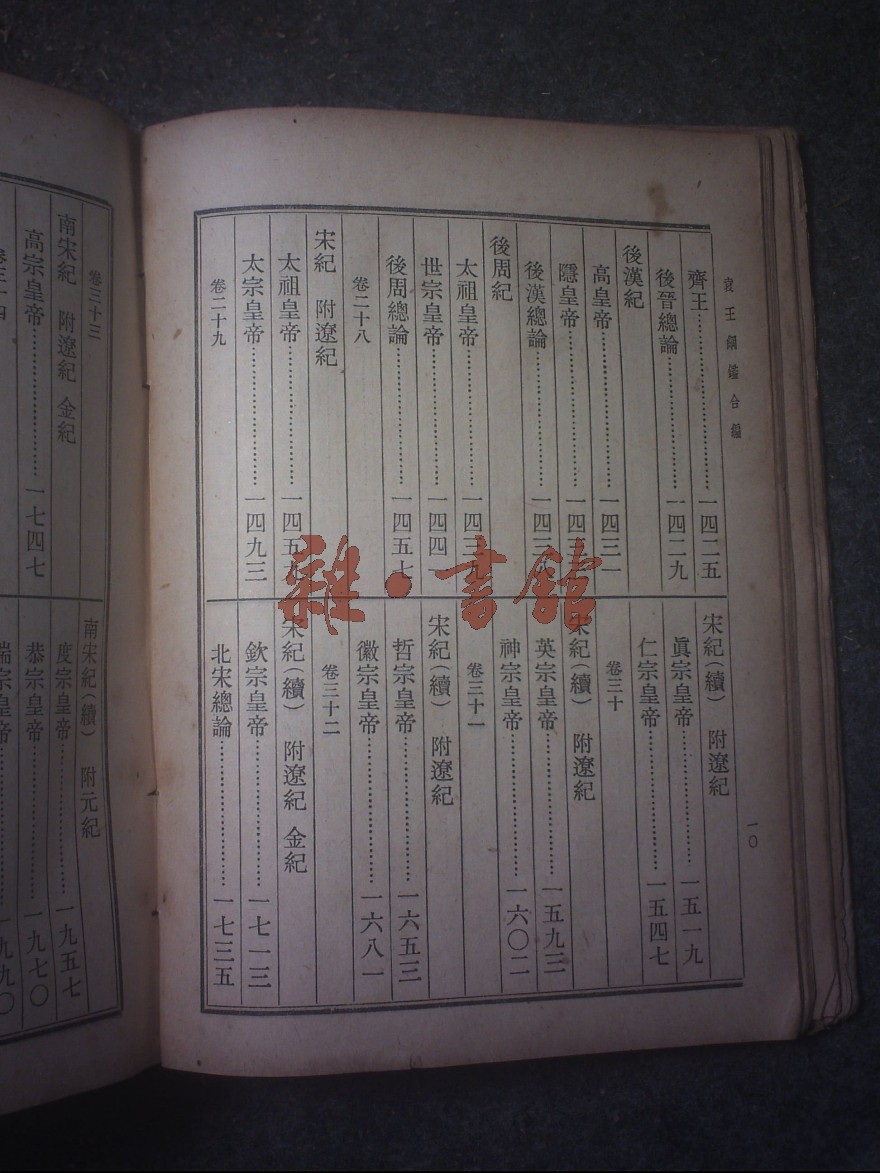 袁王綱鑑合編
一〇
齊王……一四二五
後晉總論……一四二九
後漢紀
高皇帝……一四三一
隱皇帝……一四三
後漢總論……一四三
後周紀
太祖皇帝……一四三九
世宗皇帝……一四四一
後周總論……一四五七
卷二十八
宋紀 附遼紀
太祖皇帝……一四五九
太宗皇帝……一四九三
卷二十九
宋紀(續) 附遼紀
眞宗皇帝……一五一九
仁宗皇帝……一五四七
卷三十
宋紀(續) 附遼紀
英宗皇帝……一五九三
神宗皇帝……一六〇二
卷三十一
宋紀(續) 附遼紀
哲宗皇帝……一六五三
徽宗皇帝……一六八一
卷三十二
宋紀(續) 附遼紀 金紀
欽宗皇帝……一七一三
北宋總論……一七三五
卷三十三
南宋紀 附遼紀 金紀
高宗皇帝……一七四七
卷三十四
南宋紀(續) 附元紀
度宗皇帝……一九五七
恭宗皇帝……一九七〇
端宗皇帝……一九九〇
雜·書館